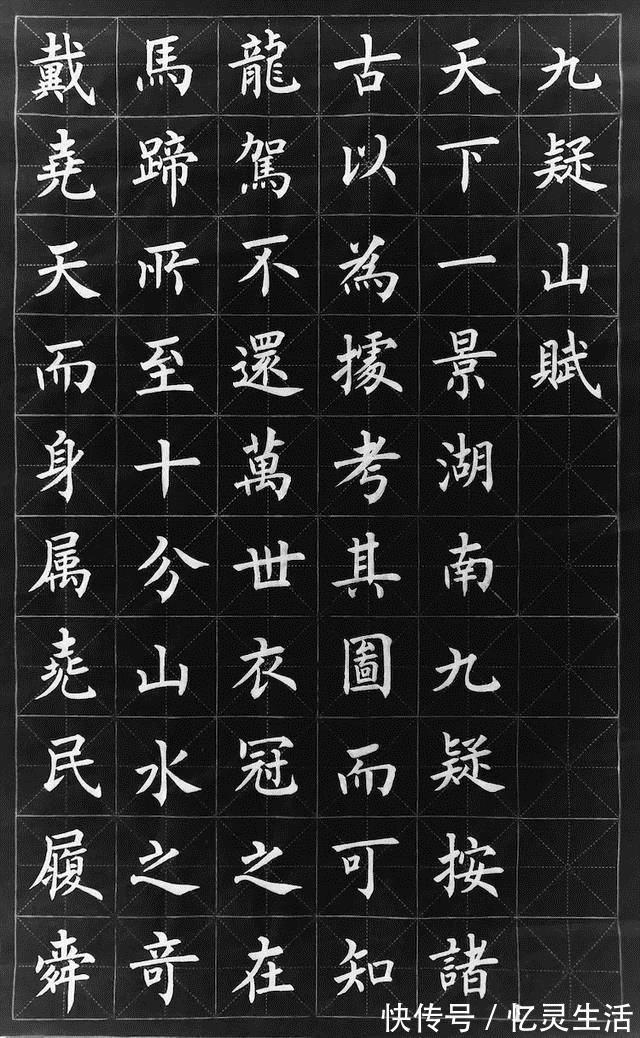 九疑山賦
天下一景湖南九疑按諸
古以為據考其圖而可知
龍駕不還萬世衣冠之在
馬蹄所至十分山水之奇
戴堯天而身属堯民履舜
快传号 / 忆灵生活